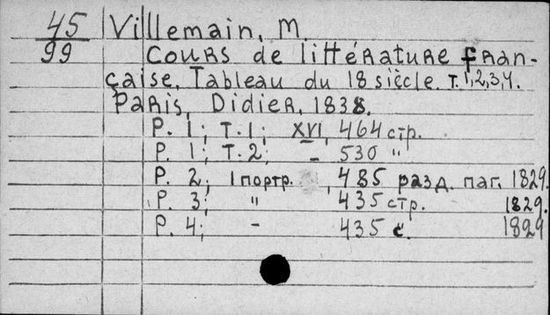 45 Villemain, M.
99 Cours de littérature fran-
çaise. Tableau du 18 siècle. т. 1,2,3,4.
Paris, Didier, 1838.
P. 1; T. 1; XVI, 464 стр.
P. 1; T. 2; – 530 "
P. 2; 1 портр. , 485 разд. паг. 1829.
P. 3; " 435 стр. 1829.
P. 4; – 435 с. 1829